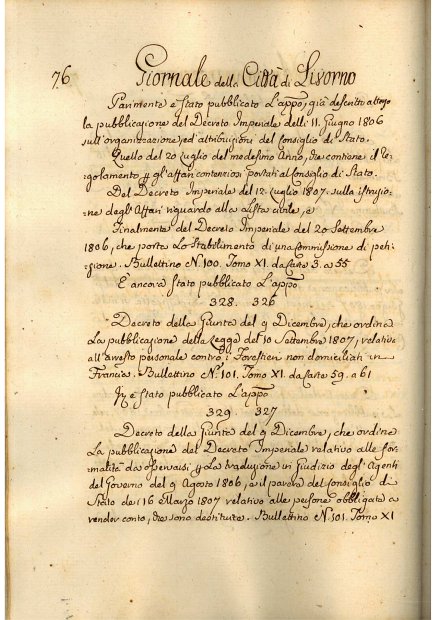 76 Giornale della Città di Livorno
Parimente è stato pubblicato L'appo, già descritto attergo
la pubblicazione del Decreto Imperiale delli 11. Giugno 1806
sull'organizzazione, ed attribuzioni del Consiglio di Stato.
Quello del 20 Luglio del medesimo Anno, che contiene il Re=
golamento p gl'affari contenziosi portati al Consiglio di Stato.
Del Decreto Imperiale del 12 Luglio 1807. sulla istruzio=
ne degl'Affari riguardo alla Lista civile, e
Finalmente del Decreto Imperiale del 20 Settembre
1806, che porta Lo Stabilimento di una Commissione di peti=
zione. Bullettino N. 100. Tomo XI. da Carte 3. a 55
È ancora stato pubblicato L'appo
328. 326
Decreto della Giunta del 9 Dicembre, che ordina
La pubblicazione della Legge del 10 Settembre 1807, relativa
all'arresto personale contro i Forestieri non domiciliati in
Francia. Bullettino N. 101. Tomo XI da Carte 59. a 61
è stato pubblicato L'appo
329. 327
Decreto della Giunta del 9 Dicembre, che ordina
La pubblicazione del Decreto Imperiale relativo alle for=
malità da osservarsi p La traduzione in Giudizio degl'Agenti
del Governo del 9 Agosto 1806, e il parere del Consiglio di
Stato de 16 Marzo 1807 relativo alle persone obbligate a
render conto, che sono destituite. Bullettino N. 101. Tomo XI